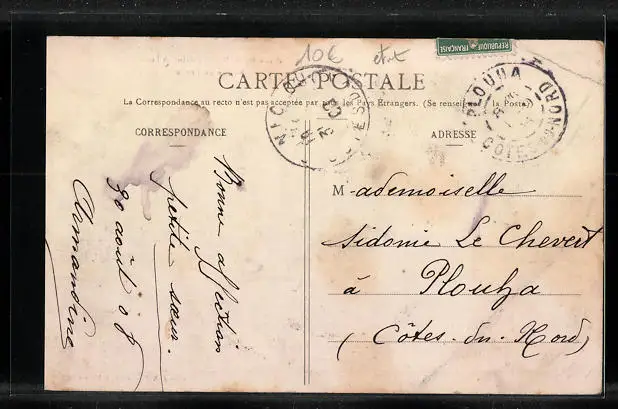 106
CARTE POSTALE
La Correspondance au recto n'est pas acceptée par tous les Pays Étrangers. (Se renseigner à la Poste)
CORRESPONDANCE
ADRESSE
REPUBLIQUE FRANÇAISE
PLOUHA
COTES-DU-NORD
Bonne affection
petite sœur.
30 août 08
Armandine
Mademoiselle
Sidonie Le Chevert
à Plouha
(Côtes-du-Nord)